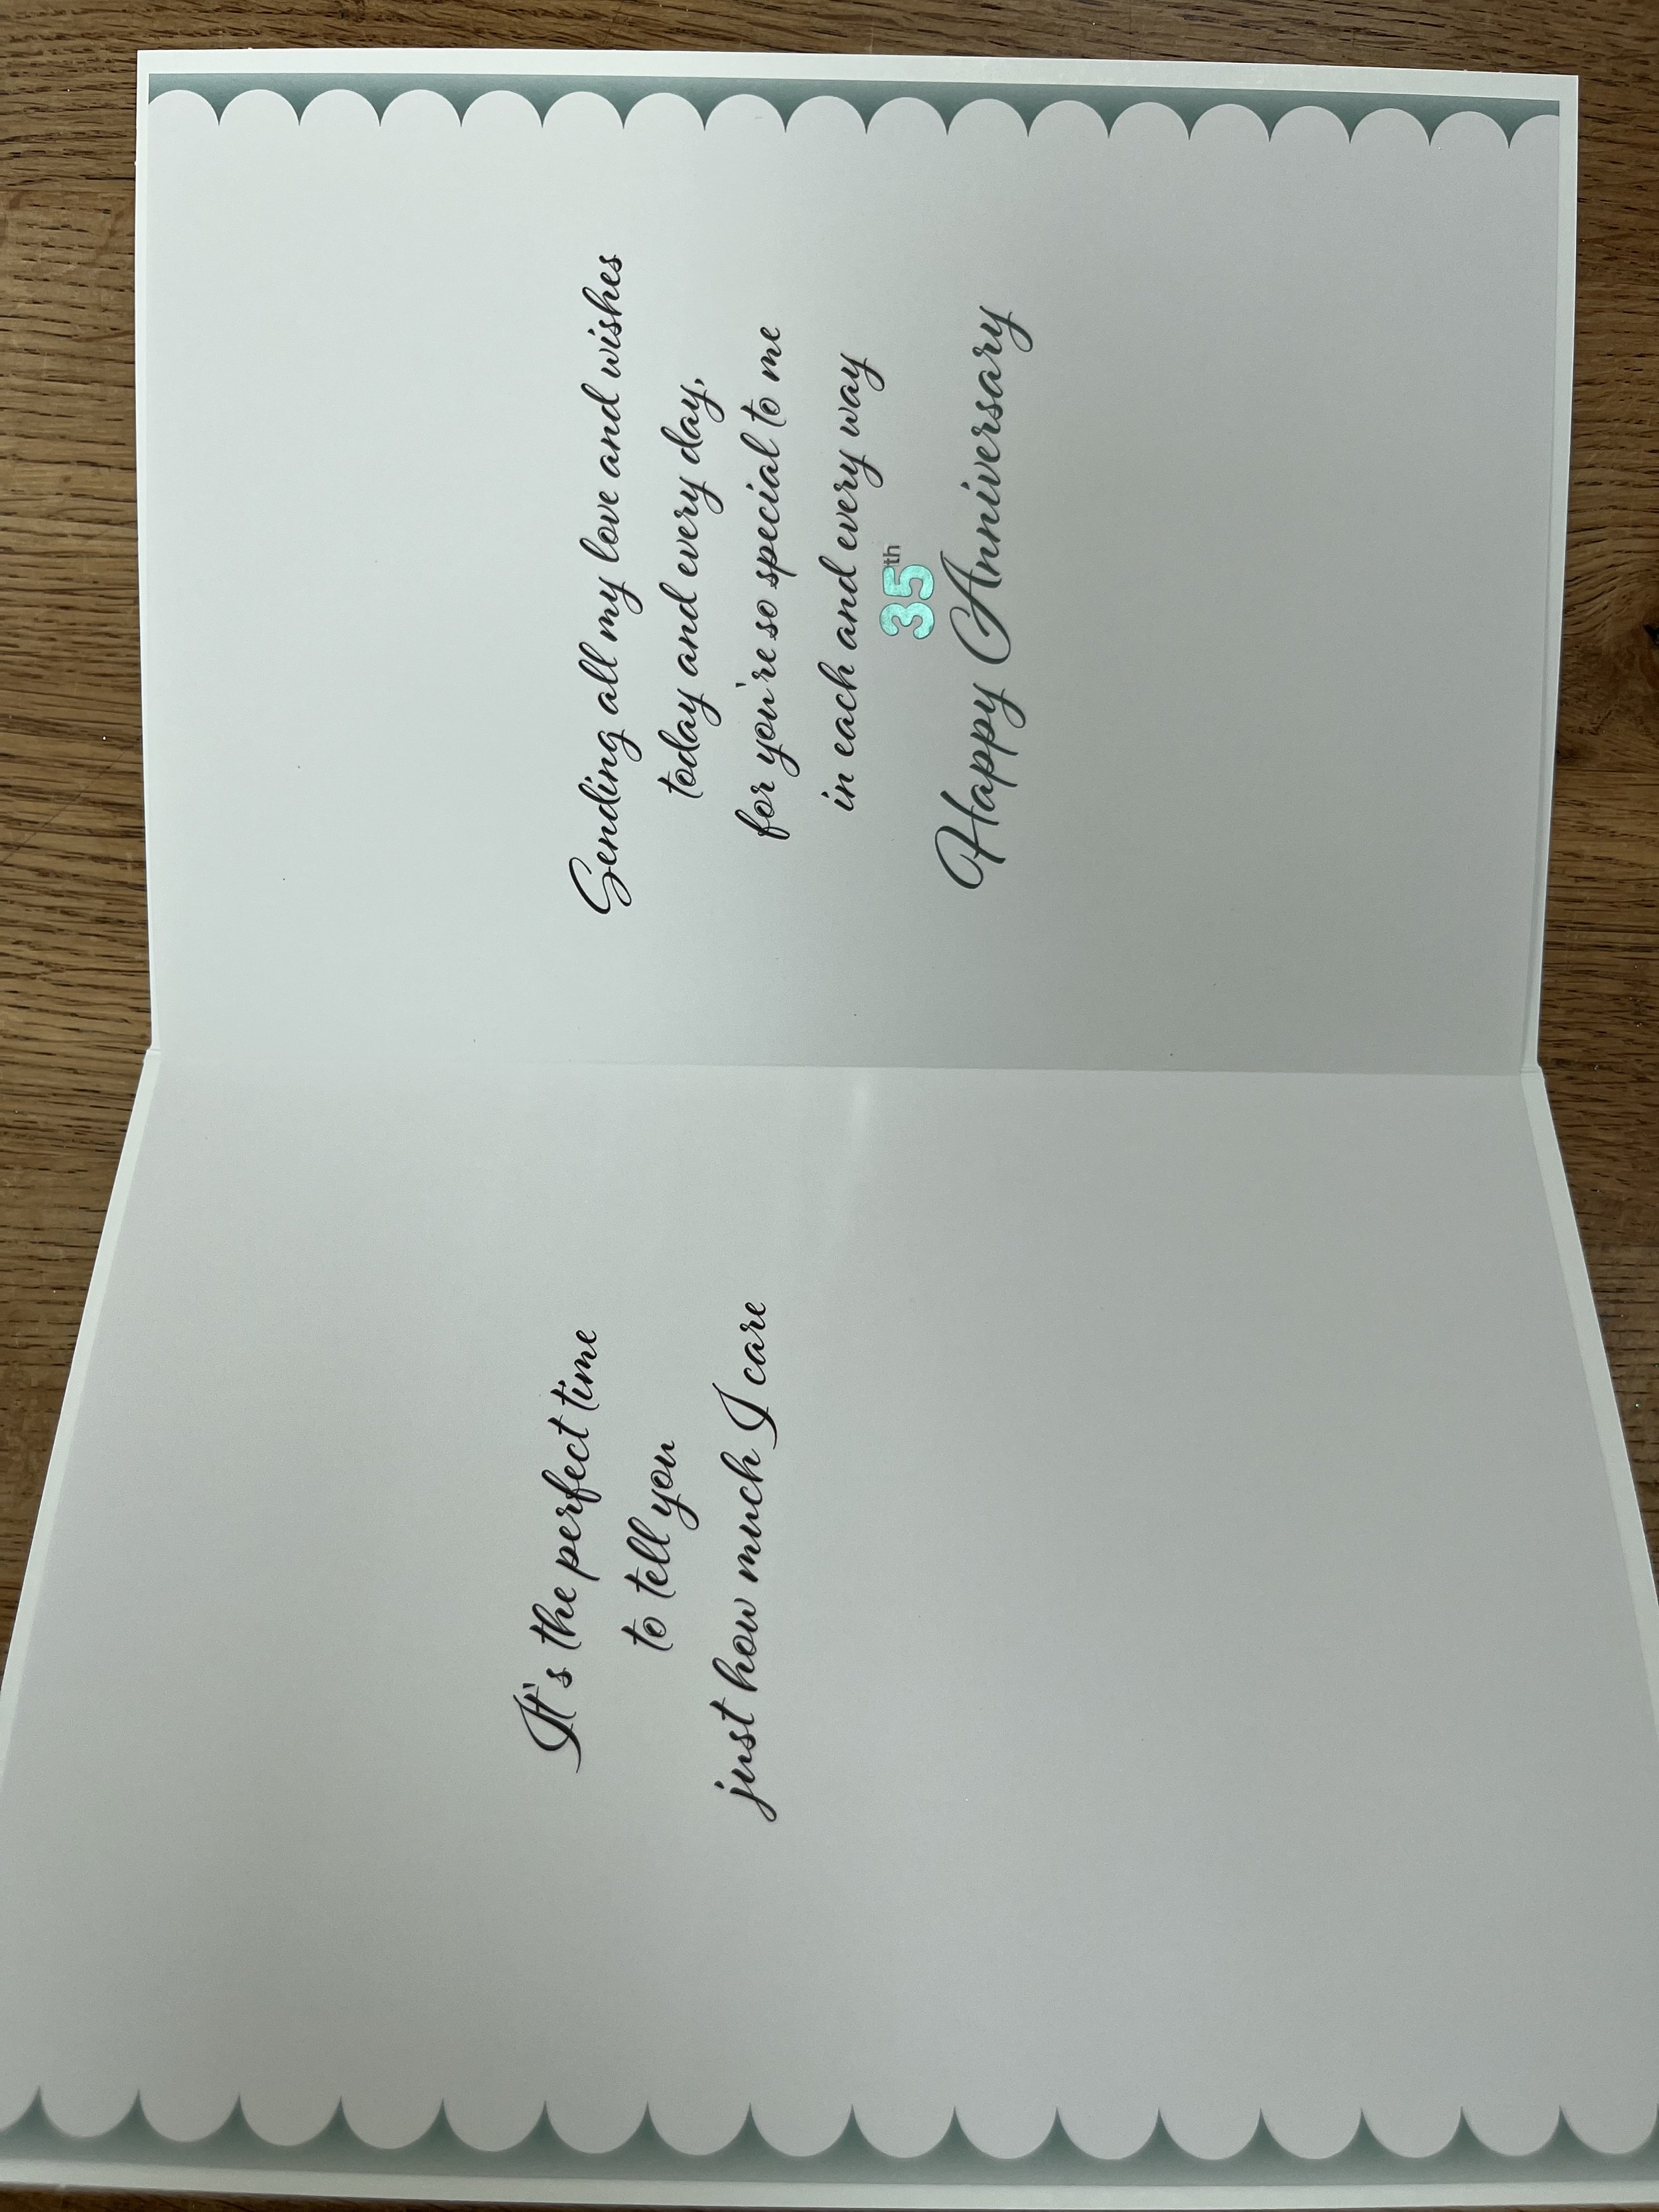 It's the perfect time
to tell you
just how much I care
Sending all my love and wishes
today and every day,
for you're so special to me
in each and every way
35th
Happy Anniversary